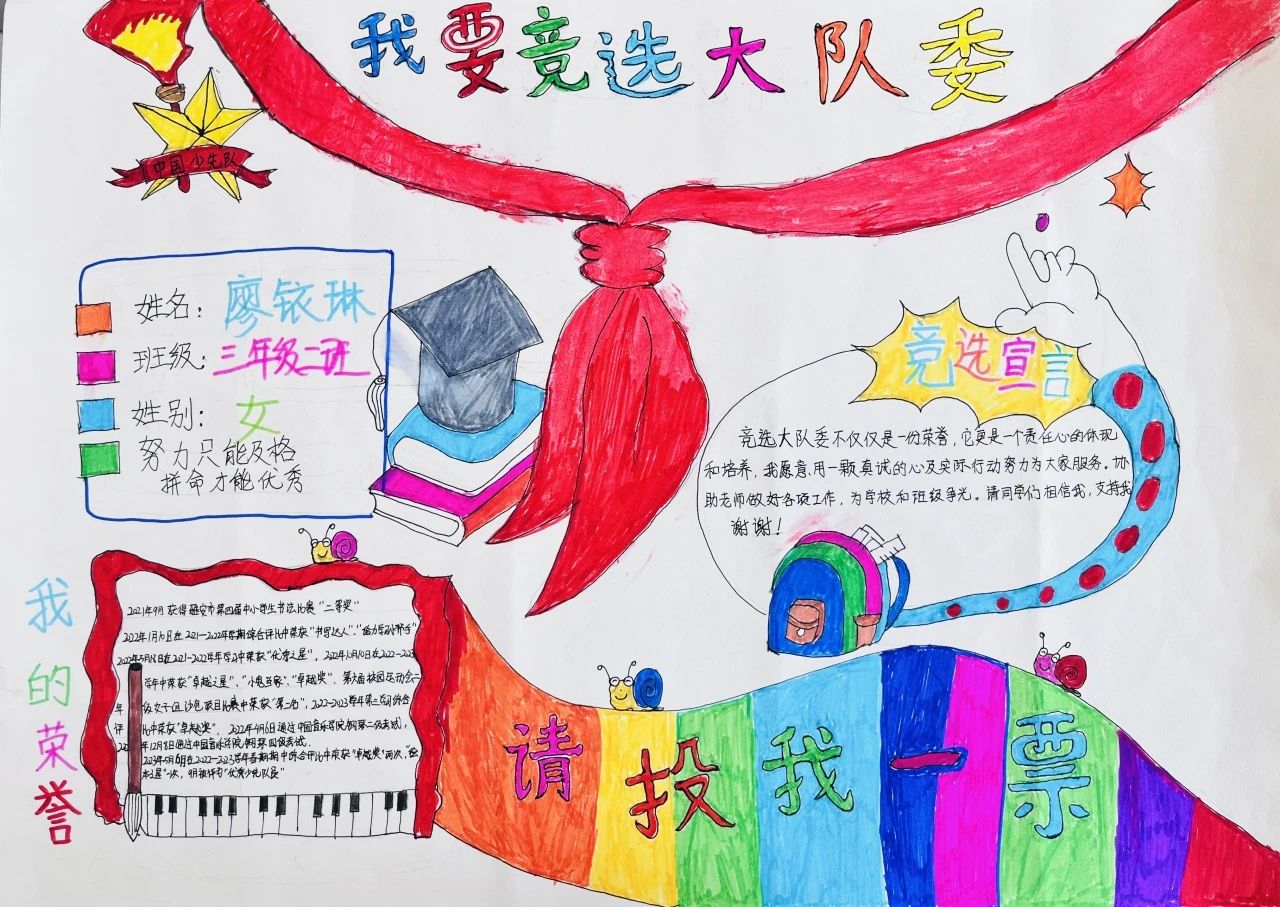 我要竞选大队委
中国少先队
姓名：廖铱琳
班级：三年级二班
姓别：女
努力只能及格
拼命才能优秀
竞选宣言
竞选大队委不仅仅是一份荣誉，它更是一个责任心的体现
和培养，我愿意用一颗真诚的心及实际行动努力为大家服务。协
助老师做好各项工作，为学校和班级争光。请同学们相信我，支持我
谢谢！
我的荣誉
2021年9月获得雅安市第四届中小学生书法比赛"二等奖"
2022年1月10日在2021-2022年学期综合评比中荣获"书写达人"、"给力
2022年5月18日在2021-2022学年学习中荣获"优秀之星"，2022年10月10日在2022-2023
学年中荣获"卓越之星"、"小电互家"、"卓越奖"、第六届校园运动会二
年级女子组沙包项目比赛中荣获"第一名"，2022-2023学年第三学习综合
评比中荣获"卓越奖"，2022年4月6日通过中国音乐学院钢琴二级考试，
年12月8日通过中国音乐学院钢琴四级考试.
2023年5月8日在2022-2023学年春期期中综合评比中荣获"卓越奖"两次，"
本之星"一次，明被评为"优秀少先队员"
请投我一票